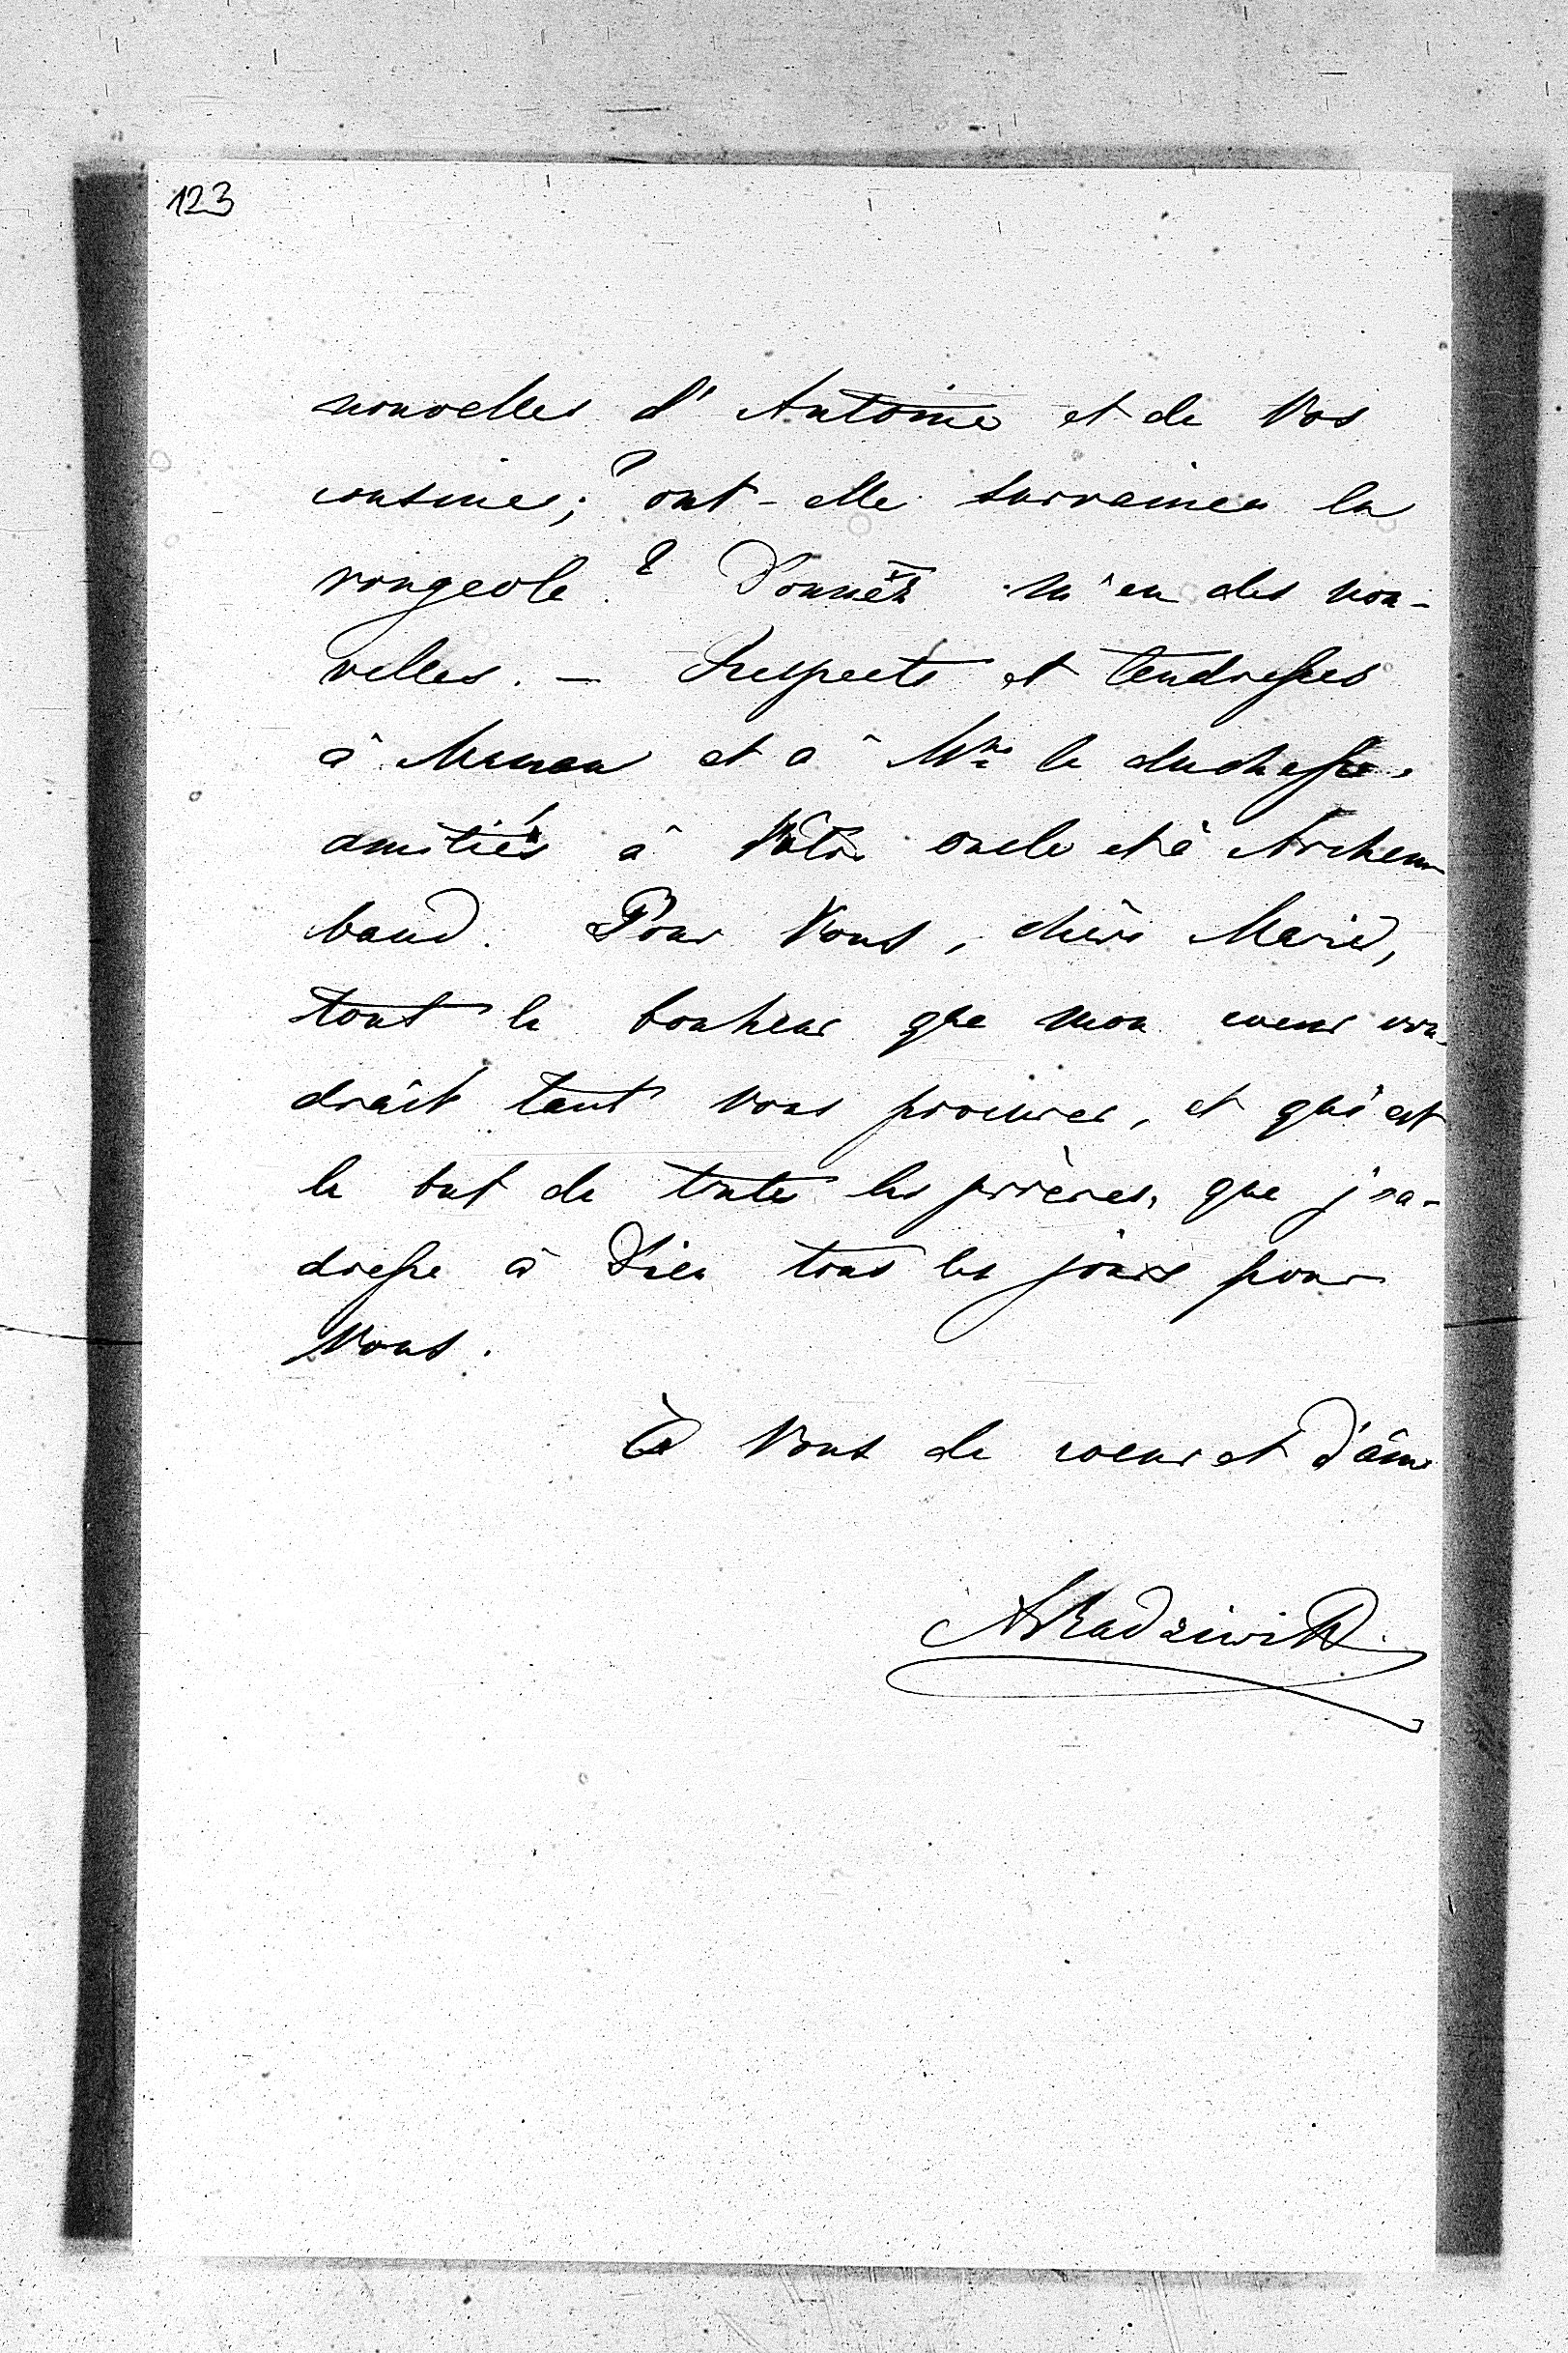 123
nouvelles d'Antoine et de Vos
cousines; ont-elle survaincu la
rougeole? Donnéz m'en des nou-
velles. — Respects et tendresses
à Maman et à Mme la duchesse,
amitiés à Vôtre oncle et à Archam-
baud. Pour Vous, chère Marie,
tout le bonheur que mon coeur vou-
drait tant vous procurer, et qui est
le but de toutes les prières, que j'a-
dresse à Dieu tous les jours pour
Vous.
À Vous de coeur et d'âme
ARadziwill